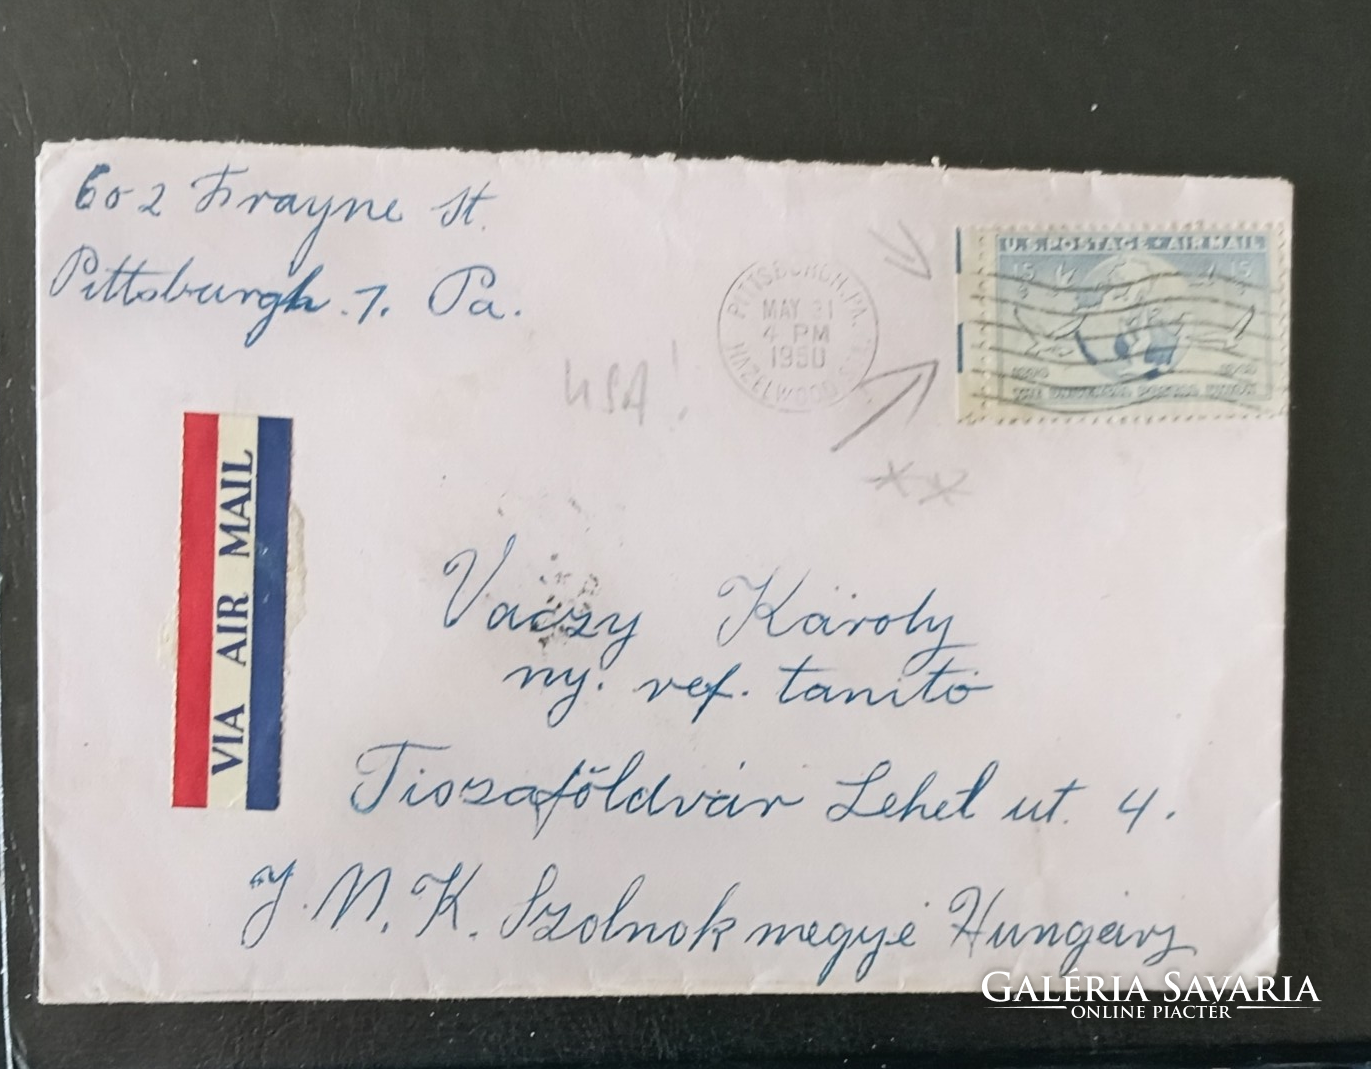 602 Frayne St.
Pittsburgh. 7. Pa.
U.S. POSTAGE - AIR MAIL
15 15
THE UNIVERSAL POSTAL UNION
PITTSBURGH, PA.
MAY 31
4 PM
1950
HAZELWOOD STA.
USA!
VIA AIR MAIL
Vaczy Károly
ny. ref. tanitó
Tiszaföldvár Lehel ut. 4.
J. N. K. Szolnok megye Hungary
GALÉRIA SAVARIA
ONLINE PIACTÉR